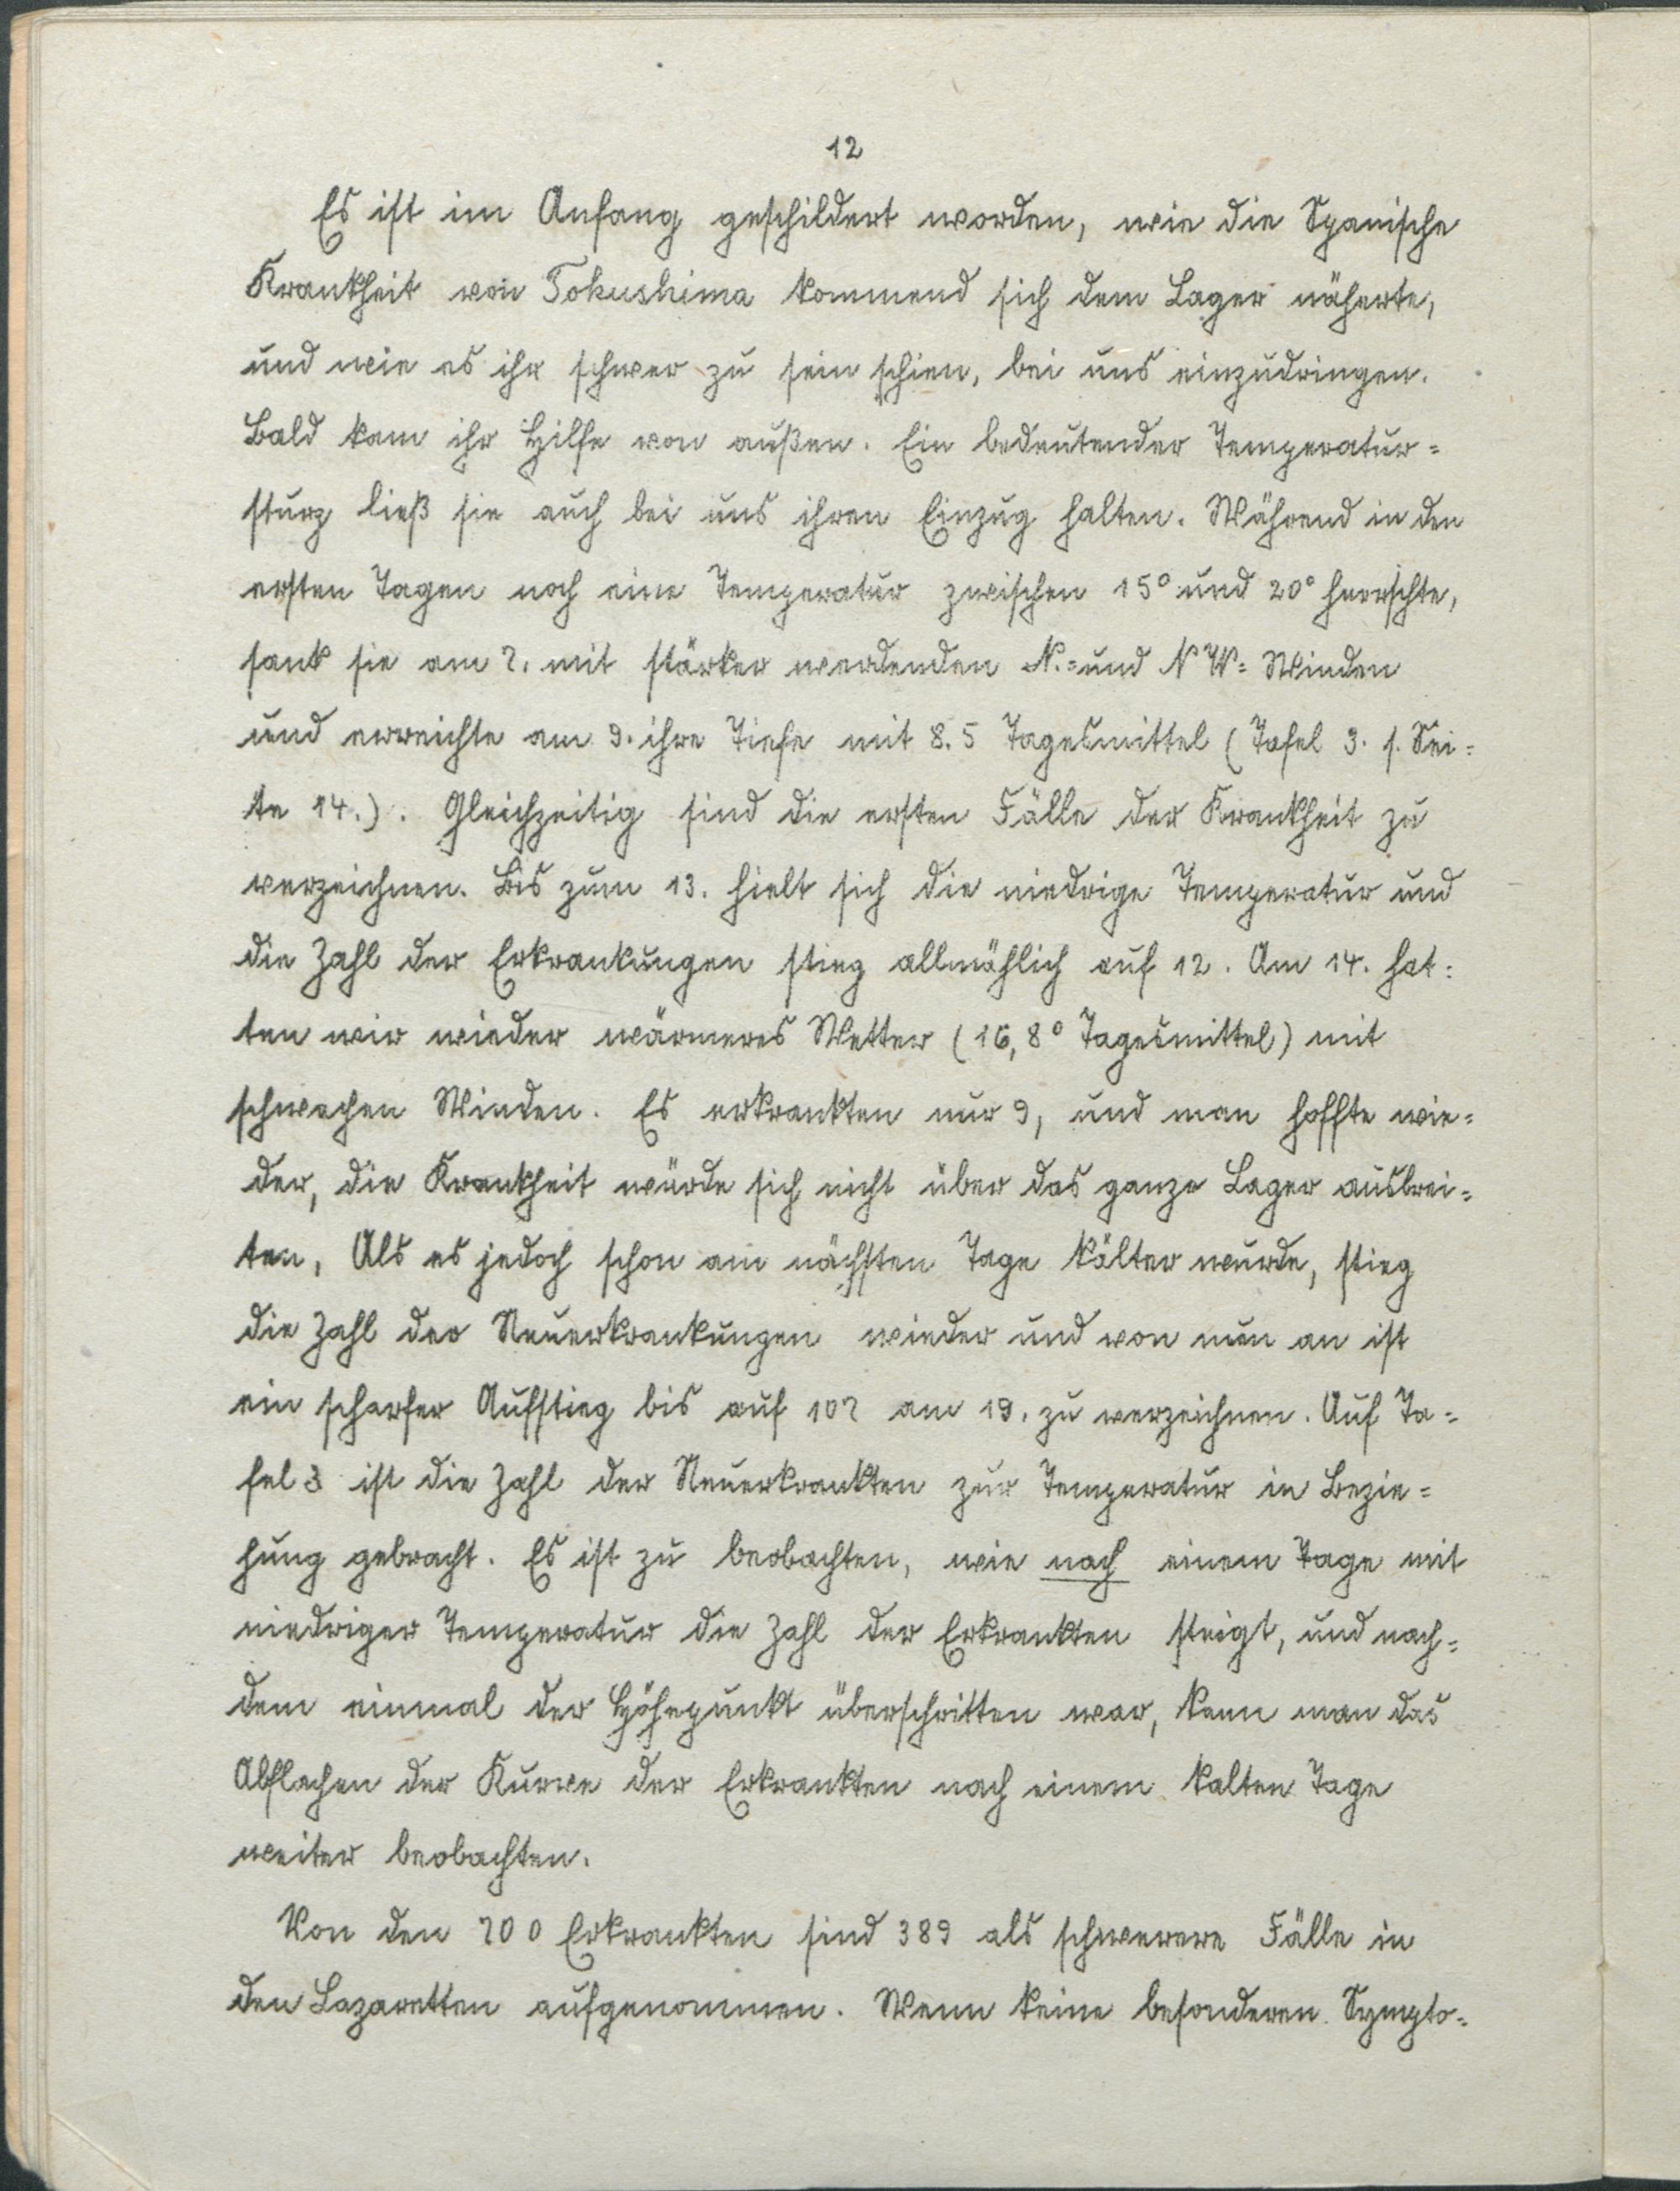 12
Es ist im Anfang geschildert worden, wie die Spanische
Krankheit von Tokushima kommend sich dem Lager näherte,
und wie es ihr schwer zu sein schien, bei uns einzudringen.
Bald kam ihr Hilfe von außen. Ein bedeutender Temperatur=
sturz ließ sie auch bei uns ihren Einzug halten. Während in den
ersten Tagen noch eine Temperatur zwischen 15° und 20° herrschte,
sank sie am 7. mit stärker werdenden N.= und NW= Winden
und erreichte am 9. ihre Tiefe mit 8.5 Tagesmittel (Tafel 3. s. Sei=
te 14.). Gleichzeitig sind die ersten Fälle der Krankheit zu
verzeichnen. Bis zum 13. hielt sich die niedrige Temperatur und
die Zahl der Erkrankungen stieg allmählich auf 12. Am 14. hat=
ten wir wieder wärmeres Wetter (16,8° Tagesmittel) mit
schwachen Winden. Es erkrankten nur 9, und man hoffte wie=
der, die Krankheit würde sich nicht über das ganze Lager ausbrei=
ten, Als es jedoch schon am nächsten Tage kälter wurde, stieg
die Zahl der Neuerkrankungen wieder und von nun an ist
ein scharfer Aufstieg bis auf 107 am 19. zu verzeichnen. Auf Ta=
fel 3 ist die Zahl der Neuerkrankten zur Temperatur in Bezie=
hung gebracht. Es ist zu beobachten, wie nach einem Tage mit
niedriger Temperatur die Zahl der Erkrankten steigt, und nach=
dem einmal der Höhepunkt überschritten war, kann man das
Abflachen der Kurve der Erkrankten nach einem kalten Tage
weiter beobachten.
Von den 700 Erkrankten sind 389 als schwerere Fälle in
den Lazaretten aufgenommen. Wenn keine besonderen Sympto=